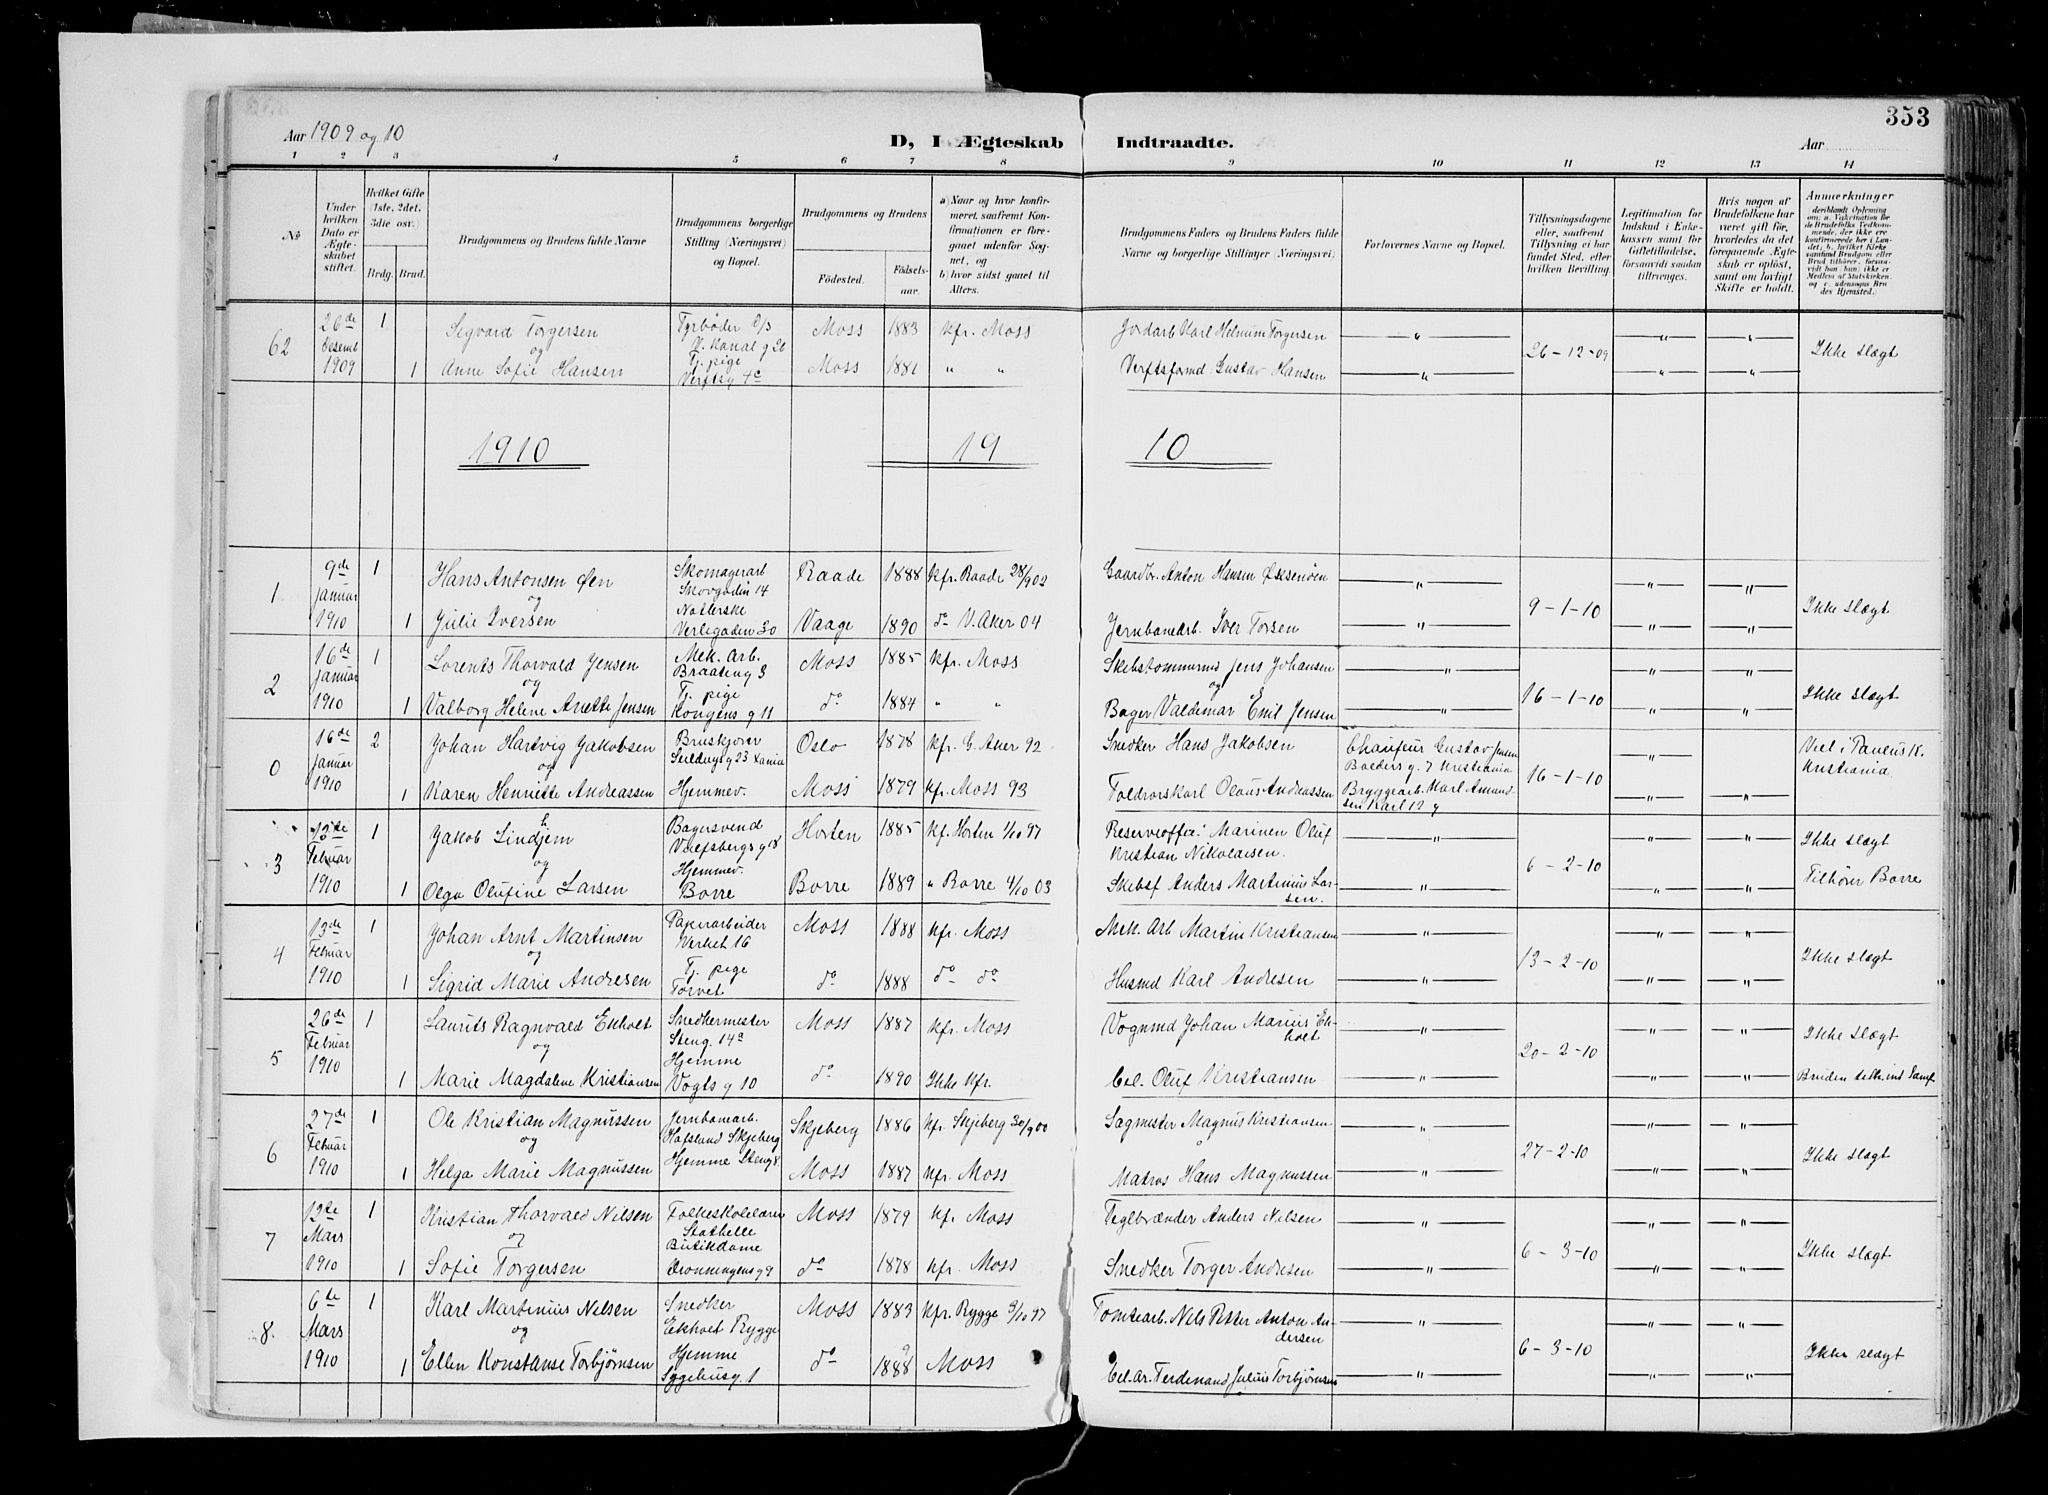 353
Aar 1909 og 10
D, I Ægteskab Indtraadte.
Aar
1 2 3 4 5 6 7 8 9 10 11 12 13 14
№
Under hvilken Dato er Ægteskabet stiftet.
Hvilket Gifte (1ste, 2det, 3die osv.)
Brdg. Brud.
Brudgommens og Brudens fulde Navne
Brudgommens borgerlige Stilling (Næringsvei) og Bopæl.
Brudgommens og Brudens
Födested. Födselsaar.
a) Naar og hvor konfirmeret, saafremt Konfirmationen er foregaaet udenfor Sognet, og
b) hvor sidst gaaet til Alters.
Brudgommens Faders og Brudens Faders fulde Navne og borgerlige Stillinger (Næringsvei)
Forlovernes Navne og Bopæl.
Tillysningsdagene eller, saafremt Tillysning ei har fundet Sted, efter hvilken Bevilling.
Legitimation for Indskud i Enkekassen samt for Giftetilladelse, forsaavidt saadan tiltrænges.
Hvis nogen af Brudefolkene har været gift før, hvorledes da det foregaaende Ægteskab er opløst, samt om lovligt Skifte er holdt.
Anmerkninger
62 26de Desemb 1909 1 Sigvard Torgersen Fyrbøder Moss 1883 kfr. Moss Jordarb Karl Helmum Torgersen " " "
og Kanal g 26 26-12-09 Ikke slægt
1 Anne Sofie Hansen Tj. pige Verftsg 4c Moss 1881 " " Verftsformd Gustav Hansen " " "
1910 19 10
1 9de Januar 1910 1 Hans Antonsen Øen Skomagerarb Skovgadin 14 Raade 1888 kfr. Raade 28/9 02 Gaardbr. Anton Hansen Øksenøen " " "
og 9-1-10 Ikke slægt
1 Julie Iversen Verligaden 30 Vaage 1890 do V. Aker 04 Jernbanearb. Iver Torsen " " "
2 16de Januar 1910 1 Lorents Thorvald Jensen Mek. Arb. Braateng 3 Moss 1885 kfr. Moss Skibstømmermd Jens Johansen " " "
og 16-1-10 Ikke slægt
1 Valborg Helene Anette Jensen Tj. pige Kongens g 11 do 1884 " " Bager Valdemar Emil Jensen " " "
0 16de Januar 1910 2 Johan Hartvig Jakobsen Bruskjører 23 Xania Oslo 1878 kfr. G. Aker 92 Snedker Hans Jakobsen Chauffeur Gustav Jensen Balders g. 7 Kristiania " Viel i Paulus K. Kristiania
og 16-1-10
1 Karen Henriette Andreassen Hjemmev. Moss 1879 kfr. Moss 93 Toldrorskarl Olaus Andreassen Bryggearb. Karl Amundsen Karl 12 g " "
3 12te Februar 1910 1 Jakob E Lindjem Bagersvend g 18 Horten 1885 kf. Horten 1/10 97 Reserveoffic. Marinen Oluf Kristian Nikolaisen. " " " Ikke slægt
og 6-2-10
1 Olga Olufine Larsen Hjemmev. Borre Borre 1889 " Borre 4/10 03 Skibsf Anders Martinius Larsen. " " " Tilhører Borre
4 13de Februar 1910 1 Johan Arnt Martinsen Papirarbeider Verket 16 Moss 1888 kfr. Moss Mek. Arb Martin Kristiansen " " "
og 13-2-10 Ikke slægt
1 Sigrid Marie Andresen Tj. pige Torvet do 1888 do do Husmd Karl Andresen " " "
5 26de Februar 1910 1 Laurits Ragnvald Ekholt Snedkermester Steng. 14a Moss 1887 kfr. Moss Vognmd Johan Marius Ekholt " " " Ikke slægt
og 20-2-10
1 Marie Magdalene Kristiansen Hjemme Vogts g 10 do 1890 Ikke kfr. Cel. Oluf Kristiansen " " "
6 27de Februar 1910 1 Ole Kristian Magnussen Jernbanearb. Hafslund Skjeberg Skjeberg 1886 kfr. Skjeberg 30/9 00 Sagmester Magnus Kristiansen " " "
og 27-2-10 Ikke slægt
1 Helga Marie Magnussen Hjemme Steng 8 Moss 1887 kfr. Moss Matros Hans Magnussen " " "
7 12te Mars 1910 1 Kristian Thorvald Nilsen Folkeskolelærer Stathelle Moss 1879 kf. Moss Teglbrænder Anders Nilsen " " "
og 6-3-10 Ikke slægt
1 Sofie Torgersen Butikdame Dronningens g 9 do 1878 kfr. Moss Snedker Torger Andresen " " "
8 6te Mars 1910 1 Karl Martinius Nilsen Snedker Ekholt Rygge Moss 1883 kfr. Rygge 3/10 97 Tomtearb. Nils Petter Anton Andersen " " "
og 6-3-10 Ikke slægt
1 Ellen Konstanse Torbjørnsen Hjemme Sygehusg. 1 do 1888 Moss Cel. ar. Ferdinand Julius Torbjørnsen " " "